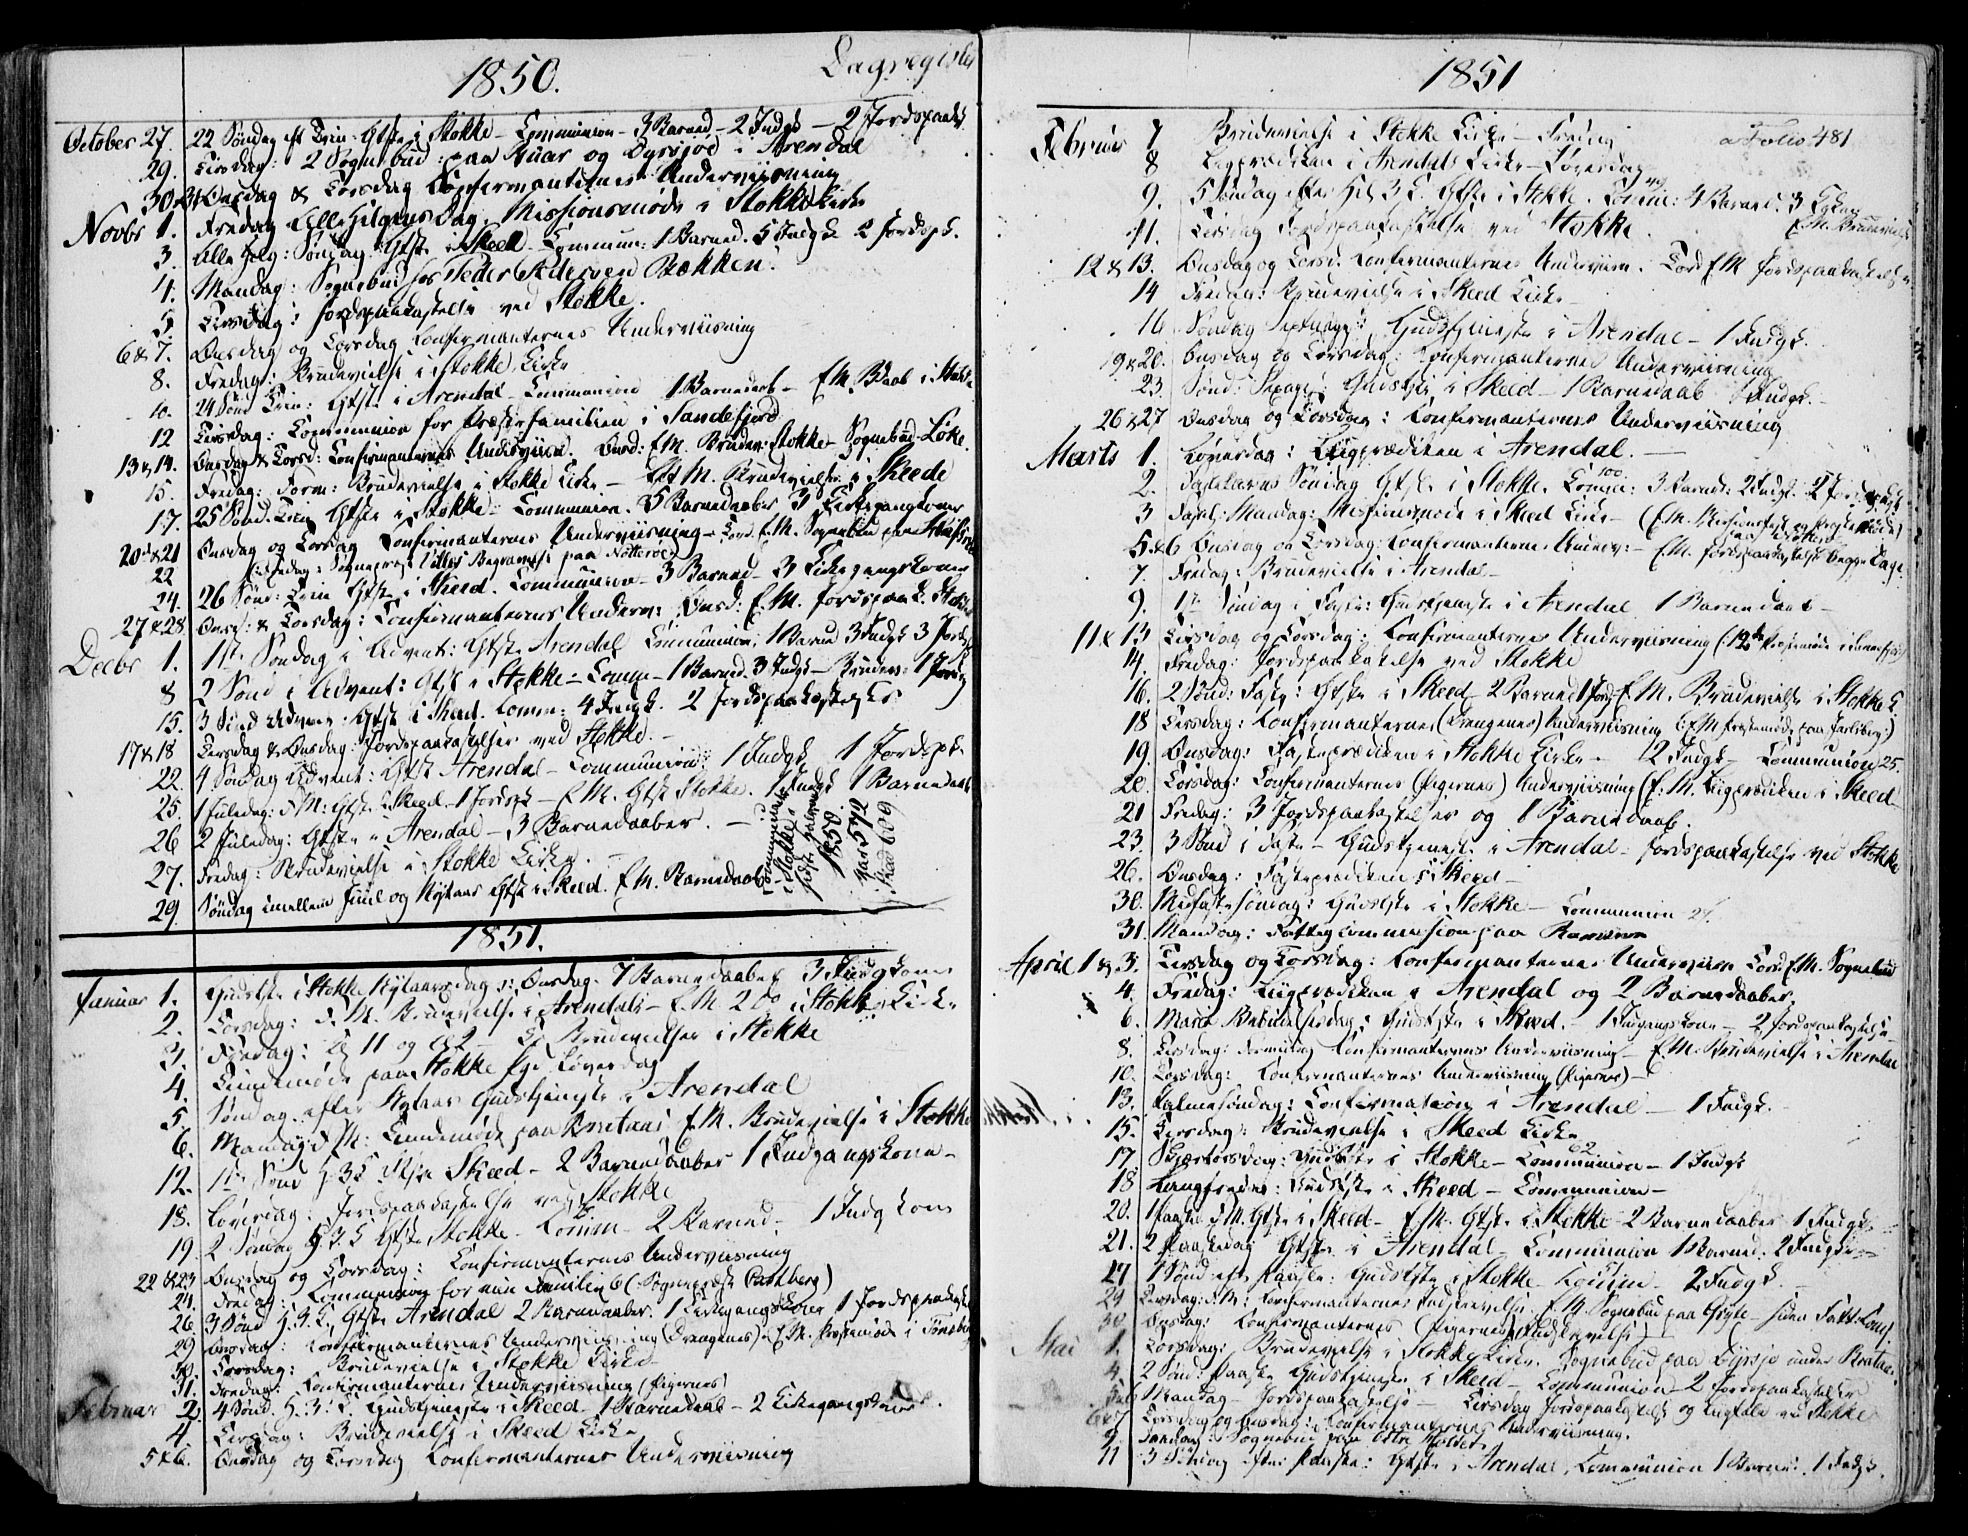 1850.
Dagregister
October 27. 22 Søndag eft Trin: Gtste i Stokke - Communion - 3 Barned - 2 Indgk - 2 Jordspaak
29. Tirsdag: 2 Sognebud: paa og i Arendal
30 & 31 Onsdag & Torsdag Confirmanternes Underviisning
Novbr 1. Fredag Alle Helgens Dag. Missionsmøde i Stokke Kirke
3. Alle Helg: Søndag: Gtste i Skeed - Commun: 1 Barned. 5 Indgk 2 Jordspk.
4. Mandag: Sognebud hos Peder Pedersen Bakken.
5. Tirsdag: Jordspaakastelse ved Stokke.
6 & 7. Onsdag og Torsdag Confirmanternes Underviisning
8. Fredag: Brudevielse i Stokke Kirke
10. 24 Sønd Trin: Gtste i Arendal - Communion 1 Barnedaab - E.M. Bdaab i Stokke
12 Tirsdag: Communion for Præstefamilien i Sandefjord
13 & 14. Onsdag & Torsd: Confirmanternes Underviisn. Onsd: E.M. Brudev: Stokke - Sognebud
15. Fredag: Form: Brudevielse i Stokke Kirke - E.M. Brudevielse i Skeede
17. 25 Sønd. Trin Gtste i Stokke - Communion. 5 Barnedaaber 3 Kirkegangskoner
20 & 21 Onsdag og Torsdag Confirmanternes Underviisning - Tors. E.M. Sognebud paa
22 Fredag: Sognepræst Begravelse paa Nøtterøe
24. 26 Sønd: Trin Gtste i Skeed. Communion - 3 Barned - 3 Kirkegangskoner
27 & 28. Onsd: & Torsdag: Confirmanternes Underv: Onsd: E.M. Jordspaak. Stokke
Decbr 1. 1ste Søndag i Advent: Gtste Arendal Communion: 1 Barned 3 Indgk 3 Jordsp
8 2 Sønd i Advent: Gtste i Stokke - Comm - 1 Barned. 3 Indgk - Brudev: 1 Jordsp
15. 3 Sønd Advent: Gtste i Skeed. Comm: 4 Indgk. 2 Jordspaakastelser
17 & 18 Tirsdag & Onsdag: Jordspaakastelser ved Stokke.
22. 4 Søndag Advent: Gtste Arendal - Communion: 1 Indgk 1 Jordspk
25. 1 Juledag: F.M: Gtste i Skeed - 1 Jordspk - E.M. Gtste Stokke. 1 Indgk 1 Barnedaab
26 2 Juledag: Gtste i Arendal - 3 Barnedaaber.
27. Fredag: Brudevielse i Stokke Kirke.
29 Søndag imellem Juul og Nytaar Gtste i Skeed. E.M. Barnedaab
Communicanter i Stokke sidste halvaar 1850. var 572 Skeed 609
1851.
Januar 1. Gudstste i Stokke Nytaarsdag o: Onsdag - 7 Barnedaaber 3 Indgkoner
2. Torsdag: F.M. Brudevielse i Arendals - E.M. 2 do i Stokke Kirke
3. Fredag: Kl 11 og Brudevielser i Stokke
4. paa Stokke Løverdag
5. Søndag efter Nytaar Gudstjeneste i Arendal
6. Mandag F.M: paa Brataas E.M. Brudevielse i Stokke
12. 1ste Sønd H 3 K Gtste Skeed - 2 Barnedaaber 1 Indgangskone
18. Løverdag: Jordspaakastelse ved Stokke
19. 2 Søndag H 3 K Gtste Stokke - Comm - 2 Barned - 1 Indgkone
22 & 23 Onsdag og Torsdag: Confirmanternes Underviisning
24. Fredag: Communion for min Familie 6 (Sognepræst)
26 3 Sønd H. 3. K. Gtste Arendal 2 Barnedaaber. 1 Kirkegangskone 1 Jordspaakast
29 Onsdag: Confirmanternes Underviisning (Drengenes) E.M. Prøstemøde i Tønsberg
30. Torsdag: Brudevielse i Stokke Kirke
31. Fredag: Confirmanternes Underviisning (Pigernes)
Februar 2. 4 Sønd. H. 3. K. Gudstjeneste i Skeed 1 Barnedaab - 2 Kirkegangskoner.
4. Tirsdag: Brudevielse i Skeed Kirke
5 & 6. Onsdag og Torsdag Confirmanternes Underviisning
1851
Februar 7 Brudevielse i Stokke Kirke - Fredag
a Folio 481
8 Liigprædiken i Arendals Kirke - Løverdag
9. 5 Søndag efter Hel 3 K. Gtste i Stokke. Comm: 4 Barned. 3 E.M. Brudevielse
11. Tirsdag Jordspaakastelse ved Stokke
12 & 13. Onsdag og Torsd. Confirmanternes Underviisn. Tors E.M Jordspaakastelse
14 Fredag: Brudevielse i Skeed Kirke
16 Søndag Septuag: Gudstjeneste i Arendal - 1 Indgk.
19 & 20. Onsdag og Torsdag: Confirmanternes Underviisning
23. Sønd: Sexag: Gudstste i Skeed - 1 Barnedaab 1 Indgk.
26 & 27 Onsdag og Torsdag: Confirmanternes Underviisning
Marts 1. Løverdag: Liigprædiken i Arendal.
2. Fastelavns Søndag Gtste i Stokke. Comm: 100 3 Barned: 2 Indgk. 2 Jordspk
3 Fastl: Mandag: Missionsmøde i Skeed Kirke - (E.M.
5 & 6 Onsdag og Torsdag: Confirmanternes Underv: - E.M. Jordspaakastelse begge Dage
7. Fredag Brudevielse i Arendal
9. 1ste Søndag i Faste: Gudstjeneste i Arendal 1 Barnedaab
11 & 13 Tirsdag og Torsdag: Confirmanternes Underviisning (12te Prøstemøde i Sandefjord)
14. Fredag: Jordspaakastelse ved Stokke
16. 2 Sønd: Faste: Gtste i Skeed 2 Barned 1 Jord. E.M. Brudevielse i Stokke K
18 Tirsdag: Confirmanternes (Drengenes) Underviisning (: E.M Prøstemøde paa Jarlsberg:)
19. Onsdag: Fasteprædiken i Stokke Kirke - 12 Indgk - Communion 25.
20. Torsdag: Confirmanternes (Pigernes) Underviisning (E.M. Liigprædiken i Skeed
21 Fredag: 3 Jordspaakastelser og 1 Barnedaab.
23. 3 Sønd i Faste - Gudstjeneste i Arendal - Jordspaakastelse ved Stokke
26. Onsdag: Fasteprædiken i Skeed
30. Midfastesøndag: Gudstste i Stokke - Communion
31. Mandag: Fattigcommission paa
April 1 & 3. Tirsdag og Torsdag: Confirmanternes Underviisn Torsd E.M. Sognebud
4. Fredag: Liigprædiken i Arendal og 2 Barnedaaber.
6. Mariæ Bebudelsesdag: Gudstste i Skeed. - 1 Indgangskone - 2 Jordspaakastelser
8. Tirsdag: Formiddag Confirmanternes Underviisning - E.M. Brudevielse i Arendal
10. Torsdag: Confirmanternes Underviisning (Pigernes)
13. Palmesøndag: Confirmation i Arendal - 1 Indgk.
15. Tirsdag: Brudevielse i Skeed Kirke
17. Skjærtorsdag: Gudstste i Stokke - Communion 62 - 1 Indgk
18 Langfredag: Gudstste i Skeed - Communion
20. 1 Paaske F.M. Gtste i Skeed - E.M. Gtste i Stokke - 2 Barnedaaber 1 Indgk.
21. 2 Paaskedag Gtste i Arendal - Communion 1 Barned: 2 Indgk
27 1 Sønd eft. Paaske: Gudstste i Stokke - Comm - 2 Indgk.
29 Tirsdag: F.M: Confirmanternes Indskrivelse. E.M. Sognebud paa - siden Fatt: Com.
30. Onsdag: Confirmanternes (Pigernes) Indskrivelse
Mai 1. Torsdag: Brudevielse i Stokke Kirke. Sognebud paa under Brataas
4. 2 Sønd: Paaske Gudstjeneste i Skeed - Communion - 2 Jordspaakastelser
5. Mandag Jordspaakastelse - Tirsdag Jordspaakastelse og Liigtale ved Stokke
6 & 7 Tirsdag og Onsdag: Confirmanternes Underviisning.
9. Fredag: Sognebud paa
11 3 Søndag efter Paaske: Gtste i Arendal, Communion 1 Barned. 1 Indgk.